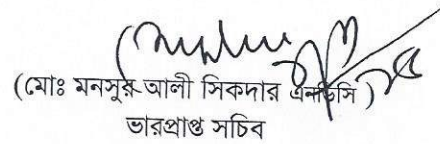 (মোঃ মনসুর আলী সিকদার এনডিসি)
ভারপ্রাপ্ত সচিব